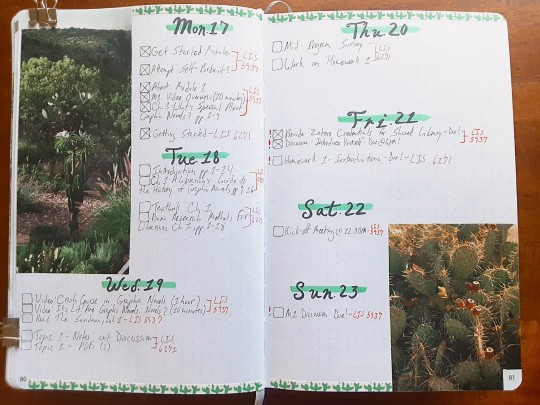 Mon. 17
Get Started Module
LIS 5937
Attempt Self-Portrait
About Module 1
M1 Video Overview (20 minutes)
Ch. 1 What's Special About
Graphic Novels? pp 1-9
LIS 5937
Getting Started - LIS 6271
Tue 18
Introduction pp 1-
Ch. 1 A Librarian's Guide to
the History of Graphic Novels pp
LIS
Textbook Ch. 1
Research Methods for
Librarians Ch. 1 pp
LIS 6271
Wed. 19
Video: Crash Course in Graphic Novels (1 hour)
Video: It's Lit! Are Graphic Novels... Novels? (10 minutes)
Read The 1 - LIS 5937
LIS 5937
Topic 1 - Notes and Discussion
Topic 1 - PDFs (1)
LIS 6271
80
Thu 20
Mid Program Survey
Work on Homework 1
LIS 6271
Fri. 21
Provide Zotero Credentials for Shared Library - Due!
Discussion - Introduce Yourself - Due @
LIS 5937
Homework 1 - Introductions - Due! - LIS 6271
Sat. 22
Kick-off Meeting @ - LIS 5937
Sun. 23
M1 Discussion Due! - LIS 5937
81